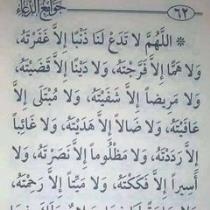 ٦٢ جوامع الدعاء
* اَللَّهُمَّ لَا تَدَعْ لَنَا ذَنْبًا إِلَّا غَفَرْتَهُ،
وَلَا هَمًّا إِلَّا فَرَّجْتَهُ، وَلَا دَيْنًا إِلَّا قَضَيْتَهُ،
وَلَا مَرِيضاً إِلَّا شَفَيْتَهُ، وَلَا مُبْتَلًى إِلَّا
عَافَيْتَهُ، وَلَا ضَالاًّ إِلَّا هَدَيْتَهُ، وَلَا غَائِباً
إِلَّا رَدَدْتَهُ، وَلَا مَظْلُوماً إِلَّا نَصَرْتَهُ، وَلَا
أَسِيراً إِلَّا فَكَكْتَهُ، وَلَا مَيِّتاً إِلَّا رَحِمْتَهُ،